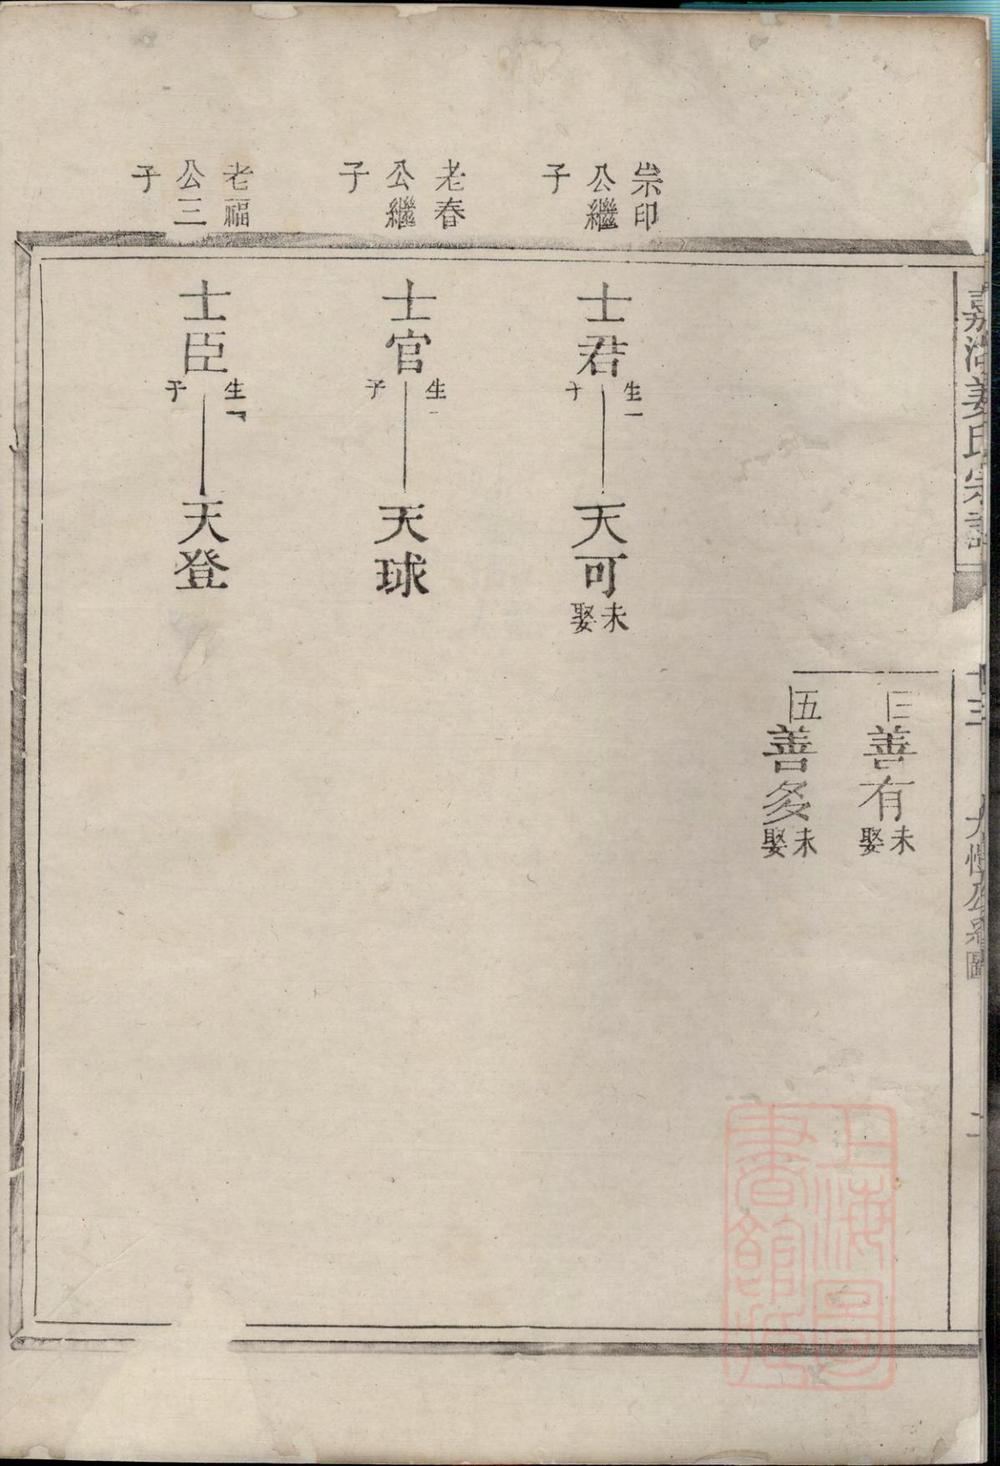 善有
未娶
五
善多
未娶
崇印
公繼
子
士君
生一
子
天可
未娶
老春
公繼
子
士官
生一
子
天球
老福
公三
子
士臣
生一
子
天登
上海圖
書館藏